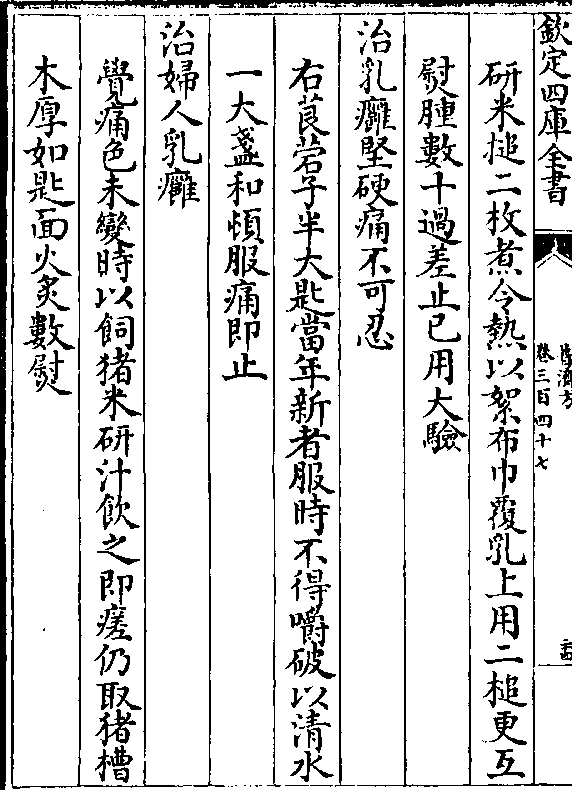 欽定四庫全書
卷三百四十七
研米搥二枚煮令熱以絮布巾覆乳上用二搥更互
熨腫數十過差止已用大驗
治乳癰堅硬痛不可忍
右莨菪子半大匙當年新者服時不得嚼破以清水
一大盞和頓服痛即止
治婦人乳癰
覺痛色未變時以飼猪米研汁飲之即瘥仍取猪槽
木厚如匙面火炙數熨